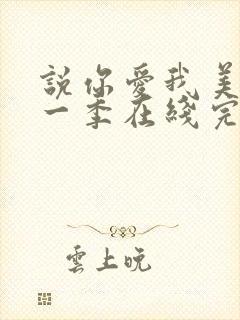 說你愛我美
一季在綫完
雲上晚